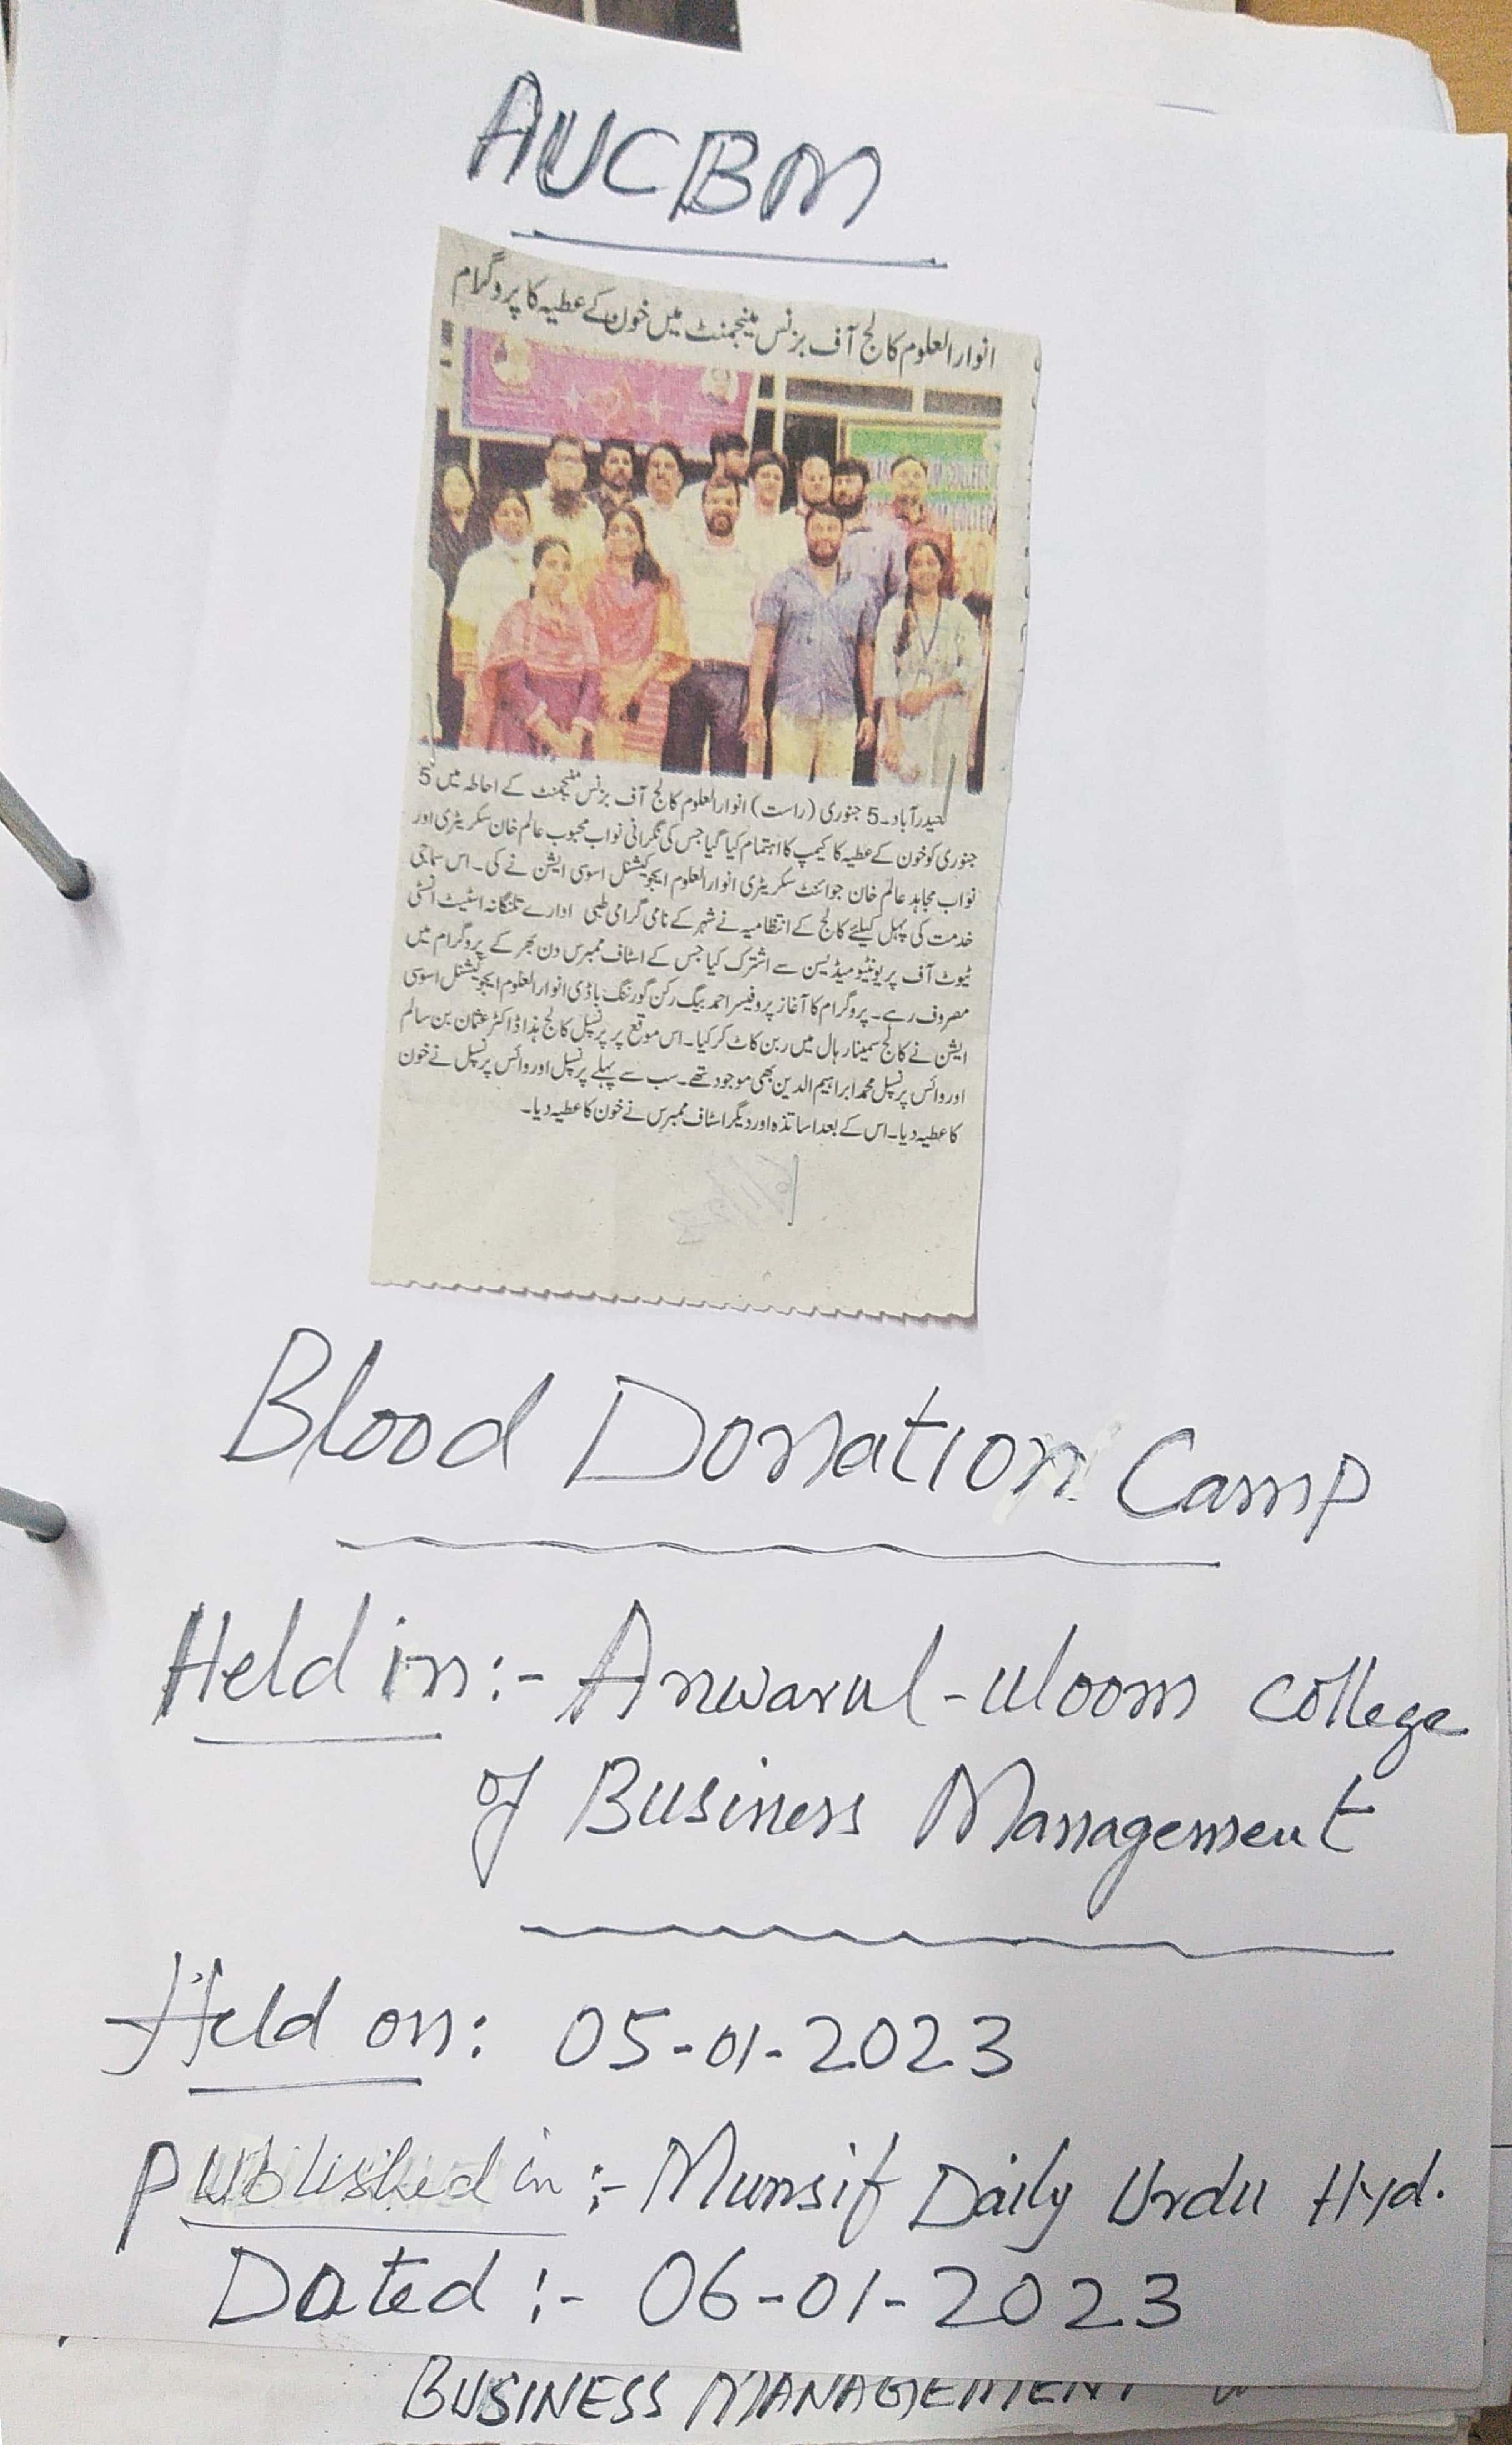 AUCBM
انوارالعلوم کالج آف بزنس مینجمنٹ میں خون کے عطیہ کا پروگرام
حیدرآباد۔5 جنوری (راست) انوارالعلوم کالج آف بزنس مینجمنٹ کے احاطہ میں 5
جنوری کو خون کے عطیہ کا کیمپ کا اہتمام کیا گیا جس کی نگرانی نواب محبوب عالم خان سکریٹری اور
نواب مجاہد عالم خان جوائنٹ سکریٹری انوارالعلوم ایجوکیشنل اسوسی ایشن نے کی۔ اس سماجی
خدمت کی پہل کیلئے کالج کے انتظامیہ نے شہر کے نامی گرامی طبی ادارے تلنگانہ اسٹیٹ انسٹی
ٹیوٹ آف پریونٹیو میڈیسن سے اشترک کیا جس کے اسٹاف ممبرس دن بھر کے پروگرام میں
مصروف رہے۔ پروگرام کا آغاز پروفیسر احمد بیگ رکن گورننگ باڈی انوارالعلوم ایجوکیشنل اسوسی
ایشن نے کالج سمینار ہال میں ربن کاٹ کر کیا۔ اس موقع پر پرنسپل کالج ہذا ڈاکٹر عثمان بن سالم
اور وائس پرنسپل محمد ابراہیم الدین بھی موجود تھے۔ سب سے پہلے پرنسپل اور وائس پرنسپل نے خون
کا عطیہ دیا۔ اس کے بعد اساتذہ اور دیگر اسٹاف ممبرس نے خون کا عطیہ دیا۔
Blood Donation Camp
Held in:- Anwarul-uloom College
of Business Management
Held on: 05-01-2023
Published in :- Munsif Daily Urdu Hyd.
Dated :- 06-01-2023
BUSINESS MANAGEMENT